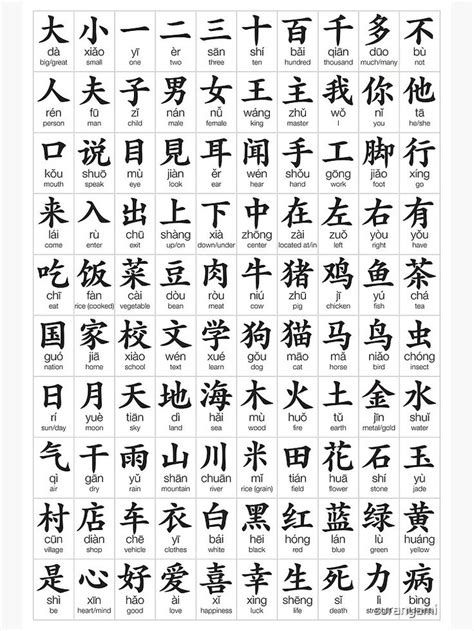 大 小 一 二 三 十 百 千 多 不
dà xiǎo yī èr sān shí bǎi qiān duō bù
big/great small one two three ten hundred thousand much/many not
人 夫 子 男 女 王 主 我 你 他
rén fū zǐ nán nǚ wáng zhǔ wǒ nǐ tā
person man child male female king master I you he/she
口 说 目 見 耳 闻 手 工 脚 行
kǒu shuō mù jiàn ěr wén shǒu gōng jiǎo xíng
mouth speak eye look ear hear hand work foot go
来 入 出 上 下 中 在 左 右 有
lái rù chū shàng xià zhōng zài zuǒ yòu yǒu
come enter exit up/on down/under center located at/in left right have
吃 饭 菜 豆 肉 牛 猪 鸡 鱼 茶
chī fàn cài dòu ròu niú zhū jī yú chá
eat rice (cooked) vegetable bean meat cow pig chicken fish tea
国 家 校 文 学 狗 猫 马 鸟 虫
guó jiā xiào wén xué gǒu māo mǎ niǎo chóng
nation home school text learn dog cat horse bird insect
日 月 天 地 海 木 火 土 金 水
rí yuè tiān dì hǎi mù huǒ tǔ jīn shuǐ
sun/day moon sky land sea wood fire earth metal/gold water
气 干 雨 山 川 米 田 花 石 玉
qì gān yǔ shān chuān mǐ tián huā shí yù
air dry rain mountain river rice (grain) field flower stone jade
村 店 车 衣 白 黑 红 蓝 绿 黄
cūn diàn chē yī bái hēi hóng lán lǜ huáng
village shop vehicle clothes white black red blue green yellow
是 心 好 爱 喜 幸 生 死 力 病
shì xīn hǎo ài xǐ xìng shēng sǐ lì bìng
be heart/mind good love happiness luck life death
surangami